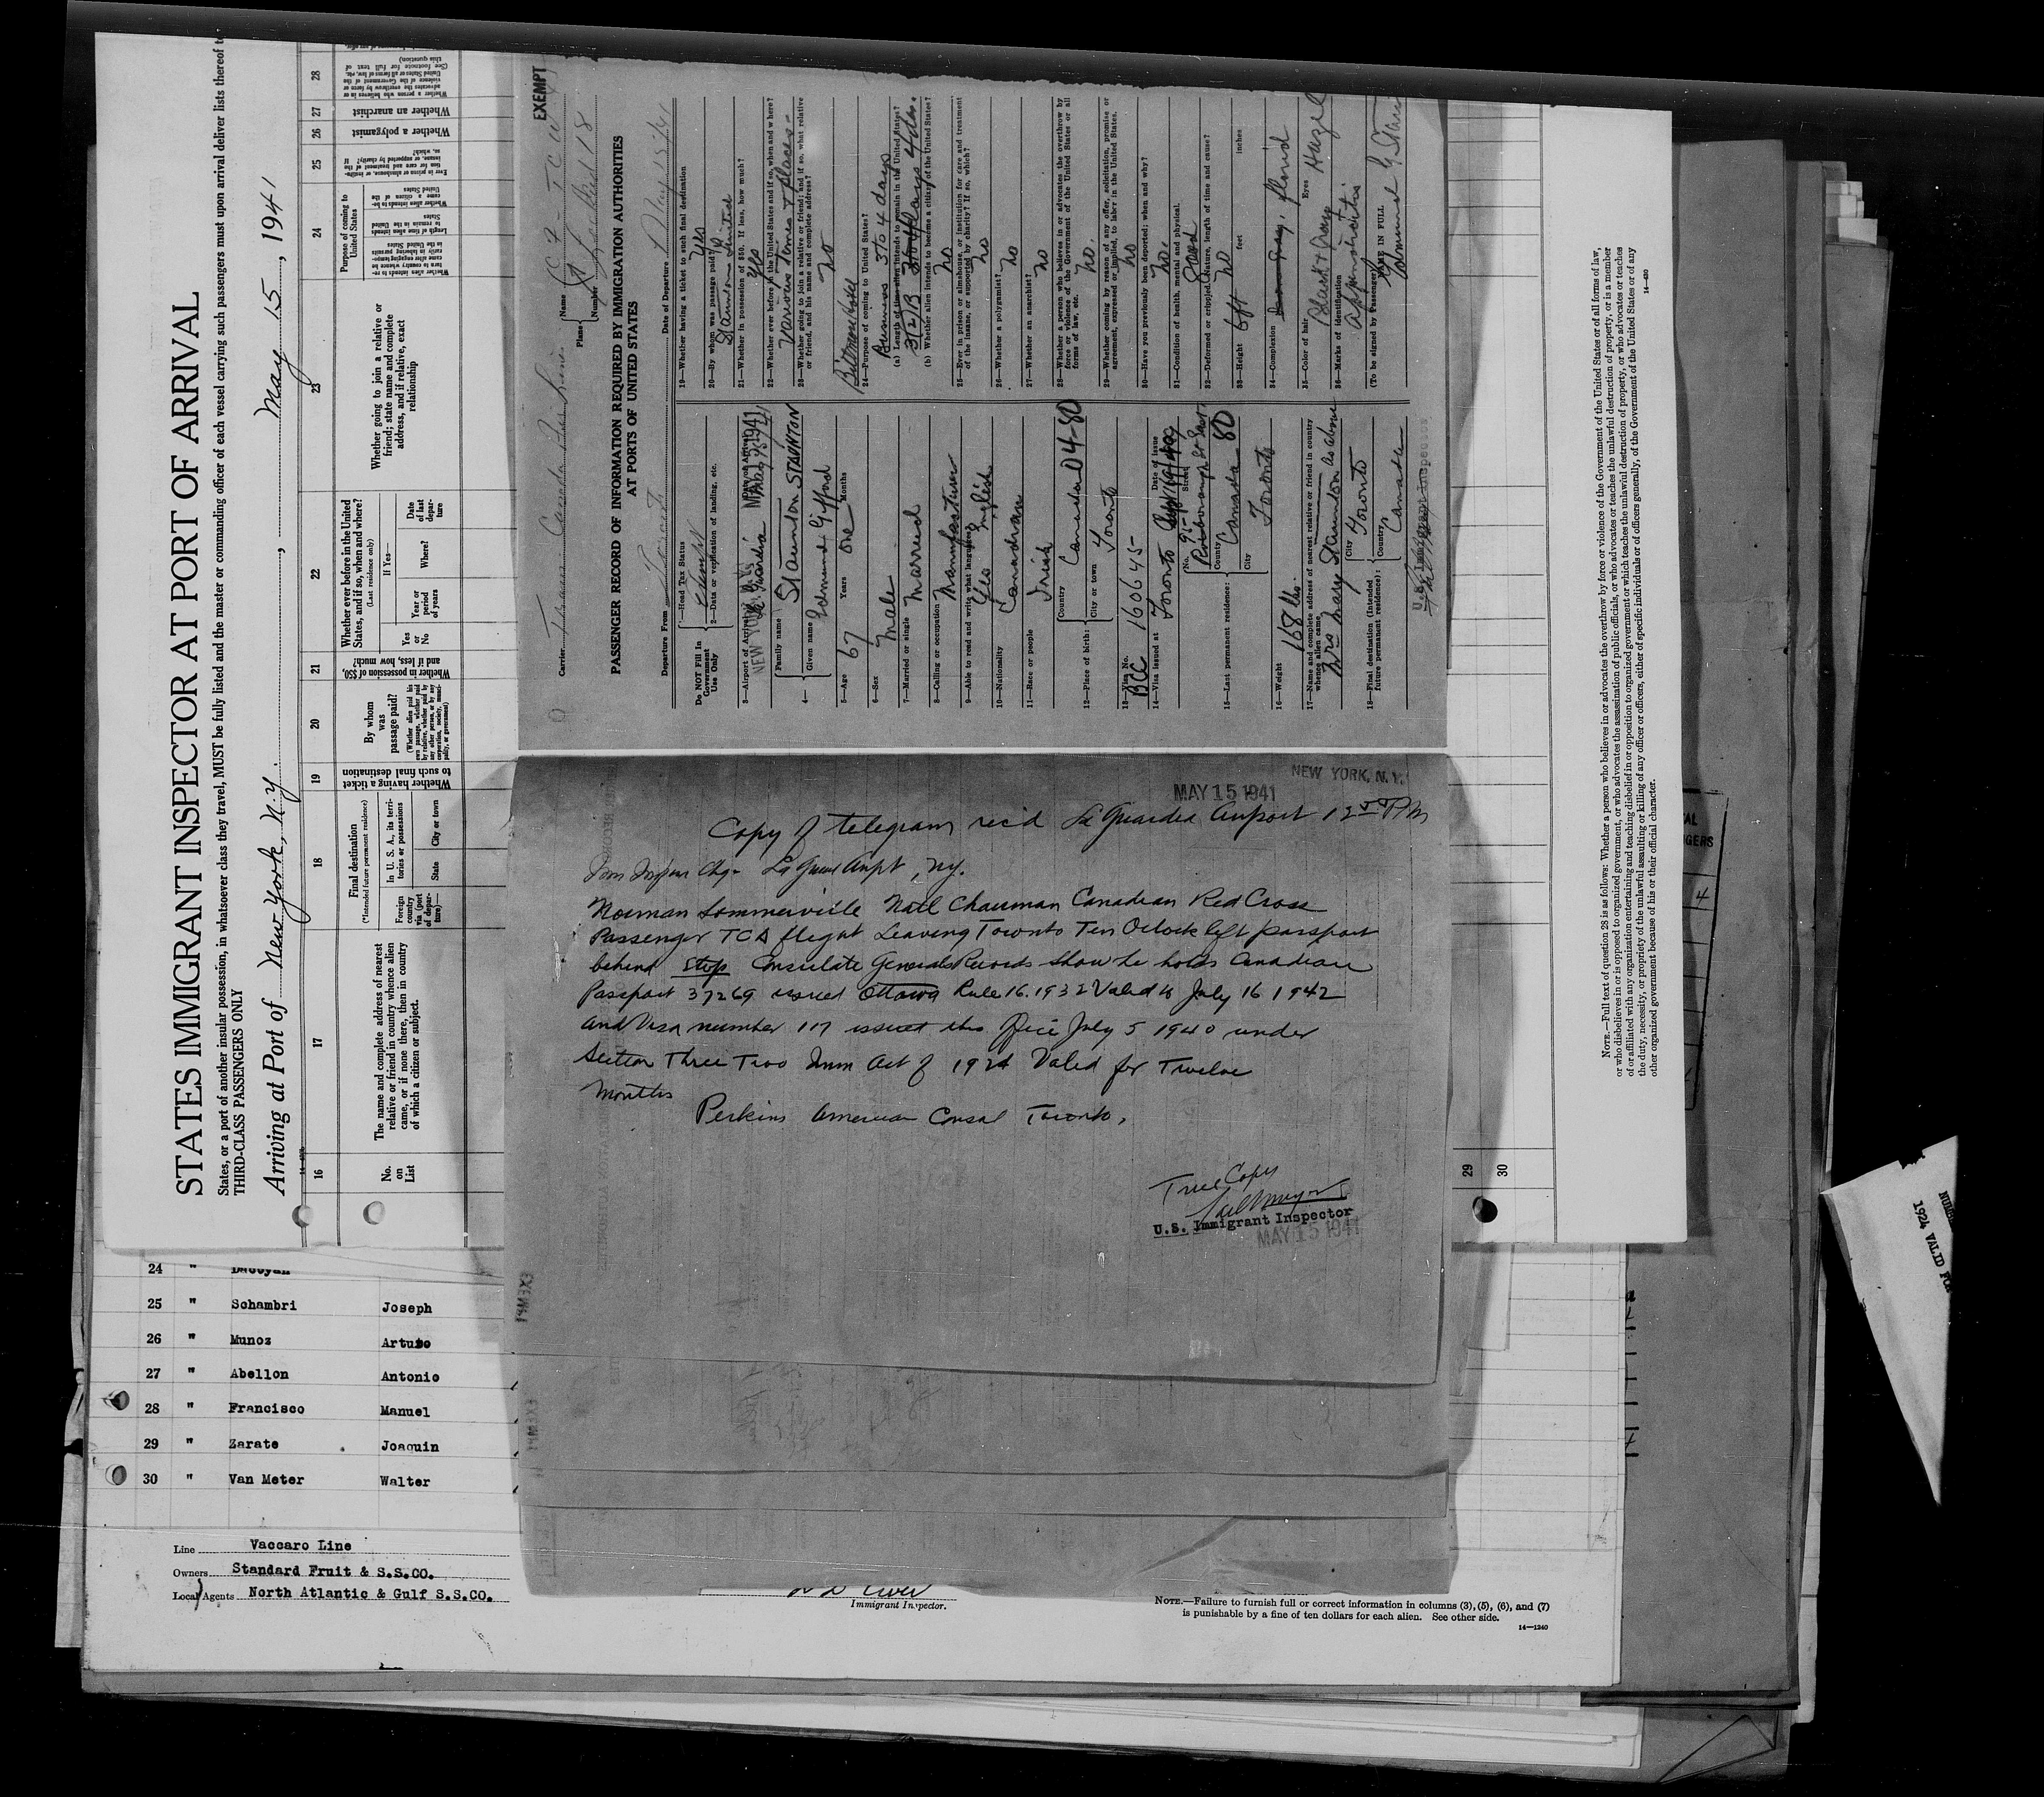 STATES IMMIGRANT INSPECTOR AT PORT OF ARRIVAL
States, or a port of another insular possession, in whatsoever class they travel, MUST be fully listed and the master or commanding officer of each vessel carrying such passengers must upon arrival deliver lists thereof
THIRD-CLASS PASSENGERS ONLY
Arriving at Port of New York, N.Y., May 15, 1941
16 17 18 19 20 21 22 23 24 25 26 27 28
No. on List
The name and complete address of nearest relative or friend in country whence alien came, or if none there, then in country of which a citizen or subject.
Final destination
(*Intended future permanent residence)
Foreign country via (port of departure)—
In U. S. A., its territories or possessions
State
City or town
Whether having a ticket to such final destination
By whom was passage paid?
Whether in possession of $50, and if less, how much?
Whether ever before in the United States, and if so, when and where?
(Last residence only)
Yes or No
If Yes—
Year or period of years
Where?
Date of last departure
Whether going to join a relative or friend; state name and complete address, and if relative, exact relationship
Purpose of coming to United States
Whether a polygamist
Whether an anarchist
EXEMPT
Carrier
Plane
Name
Number
PASSENGER RECORD OF INFORMATION REQUIRED BY IMMIGRATION AUTHORITIES
AT PORTS OF UNITED STATES
Departure From Toronto Date of Departure May 15/41
Do NOT Fill In
Government
Use Only
1—Head Tax Status
Exempt
2—Data or verification of landing, etc.
3—Airport of Arrival
NEW YORK, N.Y.
MAY 15 1941
4—
Family name Staunton STAUNTON
Given name Edmund Gifford
5—Age 67 Years one Months
6—Sex Male
7—Married or single Married
8—Calling or occupation Manufacturer
9—Able to read and write what languages? Yes English
10—Nationality Canadian
11—Race or people Irish
12—Place of birth:
Country Canada 04-80
City or town Toronto
13—Visa No. BCC 160645
14—Visa issued at Toronto Date of issue
15—Last permanent residence:
No. Street
County Canada 80
City Toronto
16—Weight 168 lbs.
17—Name and complete address of nearest relative or friend in country whence alien came
Mrs Mary Staunton as above
18—Final destination (Intended future permanent residence):
City Toronto
Country Canada
U.S. Immigrant Inspector
19—Whether having a ticket to such final destination Yes
20—By whom was passage paid?
Staunton Limited
21—Whether in possession of $50. If less, how much? Yes
22—Whether ever before in the United States and if so, when and where?
Various times & places—
23—Whether going to join a relative or friend; and if so, what relative or friend, and his name and complete address? No
Biltmore Hotel
24—Purpose of coming to United States?
Business 3 to 4 days
(a) Length of time alien intends to remain in the United States?
3(2)B 3 to 4 days 4 das.
(b) Whether alien intends to become a citizen of the United States? No
25—Ever in prison or almshouse, or institution for care and treatment of the insane, or supported by charity? If so, which? No
26—Whether a polygamist? No
27—Whether an anarchist? No
28—Whether a person who believes in or advocates the overthrow by force or violence of the Government of the United States or all forms of law, etc. No.
29—Whether coming by reason of any offer, solicitation, promise or agreement, expressed or implied, to labor in the United States. No
30—Have you previously been deported; when and why? No.
31—Condition of health, mental and physical. Good
32—Deformed or crippled. Nature, length of time and cause? No
33—Height 6ft feet inches
34—Complexion florid
35—Color of hair Black & Gray Eyes Hazel
36—Marks of identification
(To be signed by Passenger)
NAME IN FULL
NEW YORK, N.Y.
MAY 15 1941
Copy of telegram rec'd La Guardia Airport
Norman Sommerville Natl Chairman Canadian Red Cross
Passenger TCA flight Leaving Toronto Ten Oclock left passport
behind Stop Consulate Generals Records show he holds Canadian
Passport 37269 issued Ottawa 16. 1932 Valid to July 16 1942
and Visa number 117 issued this office July 5 1940 under
Section Three Two Imm Act of 1924 Valid for Twelve
Months
Perkins American Consul Toronto.
True Copy
U.S. Immigrant Inspector
MAY 15 1941
29
30
24 "
25 " Schambri Joseph
26 " Munoz Arturo
27 " Abellon Antonio
28 " Francisco Manuel
29 " Zarate Joaquin
30 " Van Meter Walter
Line Vaccaro Line
Owners Standard Fruit & S.S.CO.
Local Agents North Atlantic & Gulf S.S.CO.
Immigrant Inspector.
NOTE.—Failure to furnish full or correct information in columns (3), (5), (6), and (7)
is punishable by a fine of ten dollars for each alien. See other side.
14—1240
NOTE.—Full text of question 28 is as follows: Whether a person who believes in or advocates the overthrow by force or violence of the Government of the United States or of all forms of law,
or who disbelieves in or is opposed to organized government, or who advocates the assassination of public officials, or who advocates or teaches the unlawful destruction of property, or is a member
of or affiliated with any organization entertaining and teaching disbelief in or opposition to organized government or which teaches the unlawful destruction of property, or who advocates or teaches
the duty, necessity, or propriety of the unlawful assaulting or killing of any officer or officers, either of specific individuals or of officers generally, of the Government of the United States or of any
other organized government because of his or their official character.
14—480
1924 VALID